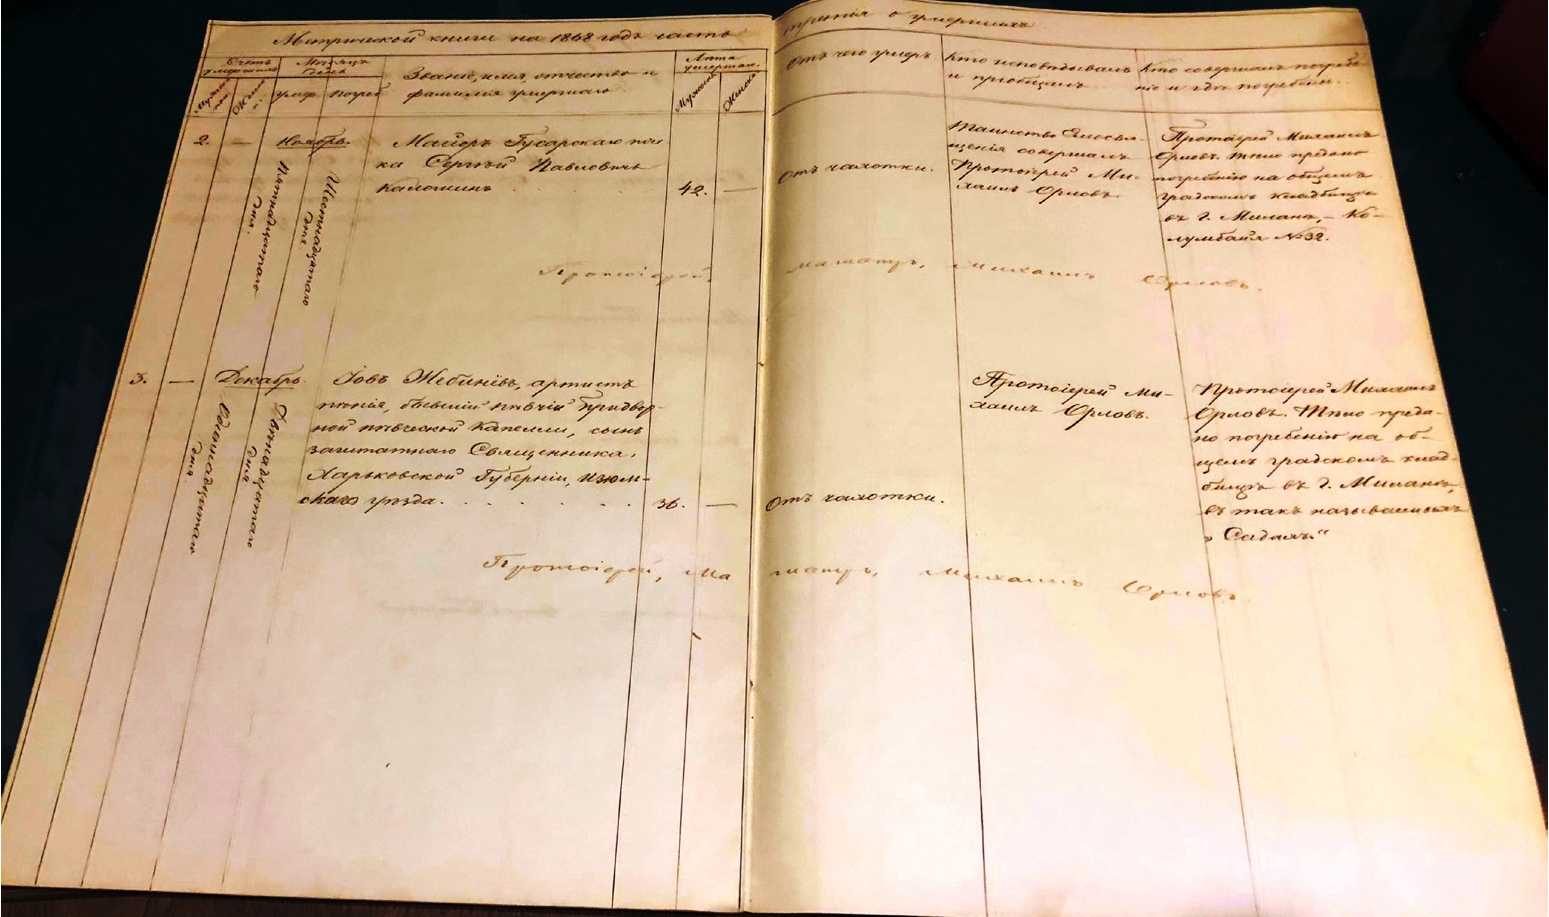 Метрической книги на 1868 годъ часть
третія о умершихъ
Счетъ умершихъ.
Мужеска пол.
Женск. п.
Мѣсяцъ и день
умер.
погреб.
Званіе, имя, отчество и
фамилія умершаго
Лѣта умершаго.
Мужеск.
Женска.
Отъ чего умеръ
Кто исповѣдывалъ
и пріобщалъ.
Кто совершалъ погребе-
ніе и гдѣ погребены.
2. —
Ноябрь.
Пятнадцатаго дня.
Шестнадцатаго дня.
Маіоръ Гусарскаго пол
ка Сергѣй Павловичъ
Калошинъ
42. —
Отъ чахотки.
Таинство Елеосвя-
щенія совершалъ
Протоіерей Ми-
хаилъ Орловъ.
Протоіерей Михаилъ
Орловъ. Тѣло предано
погребенію на общемъ
градскомъ кладбищѣ
въ г. Миланѣ, – Ко-
лумбаія №32.
Протоіерей, магистръ, Михаилъ Орловъ.
3. —
Декабрь
Одинадцатаго дня
Двѣнадцатаго дня
Іовъ Жебинёвъ, артистъ
пѣнія, бывшій пѣвчій Придвор-
ной пѣвческой Капеллы, сынъ
заштатнаго Священника,
Харьковской Губерніи, Изюм-
скаго уѣзда.
36. —
Отъ чахотки.
Протоіерей Ми-
хаилъ Орловъ.
Протоіерей Михаилъ
Орловъ. Тѣло преда-
но погребенію на об-
щемъ градскомъ клад-
бищѣ въ г. Миланѣ,
въ такъ называемыхъ
„Садахъ."
Протоіерей, Магистръ, Михаилъ Орловъ.